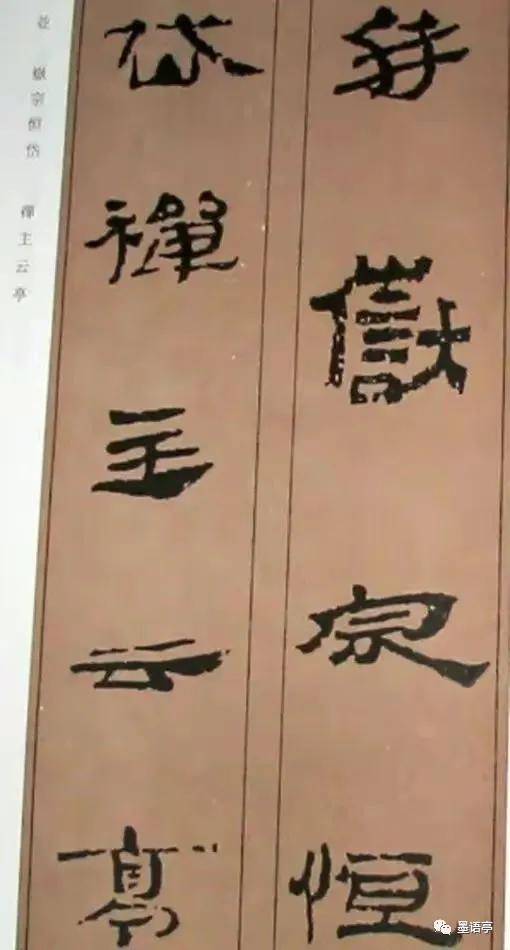 并嶽宗恒
岱禪主云亭
並 嶽宗恒岱 禪主云亭
墨语亭